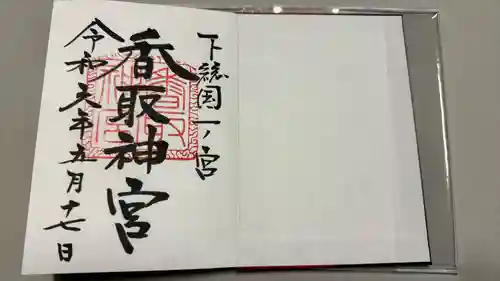 下総国一ノ宮
香取神宮
令和元年五月十七日